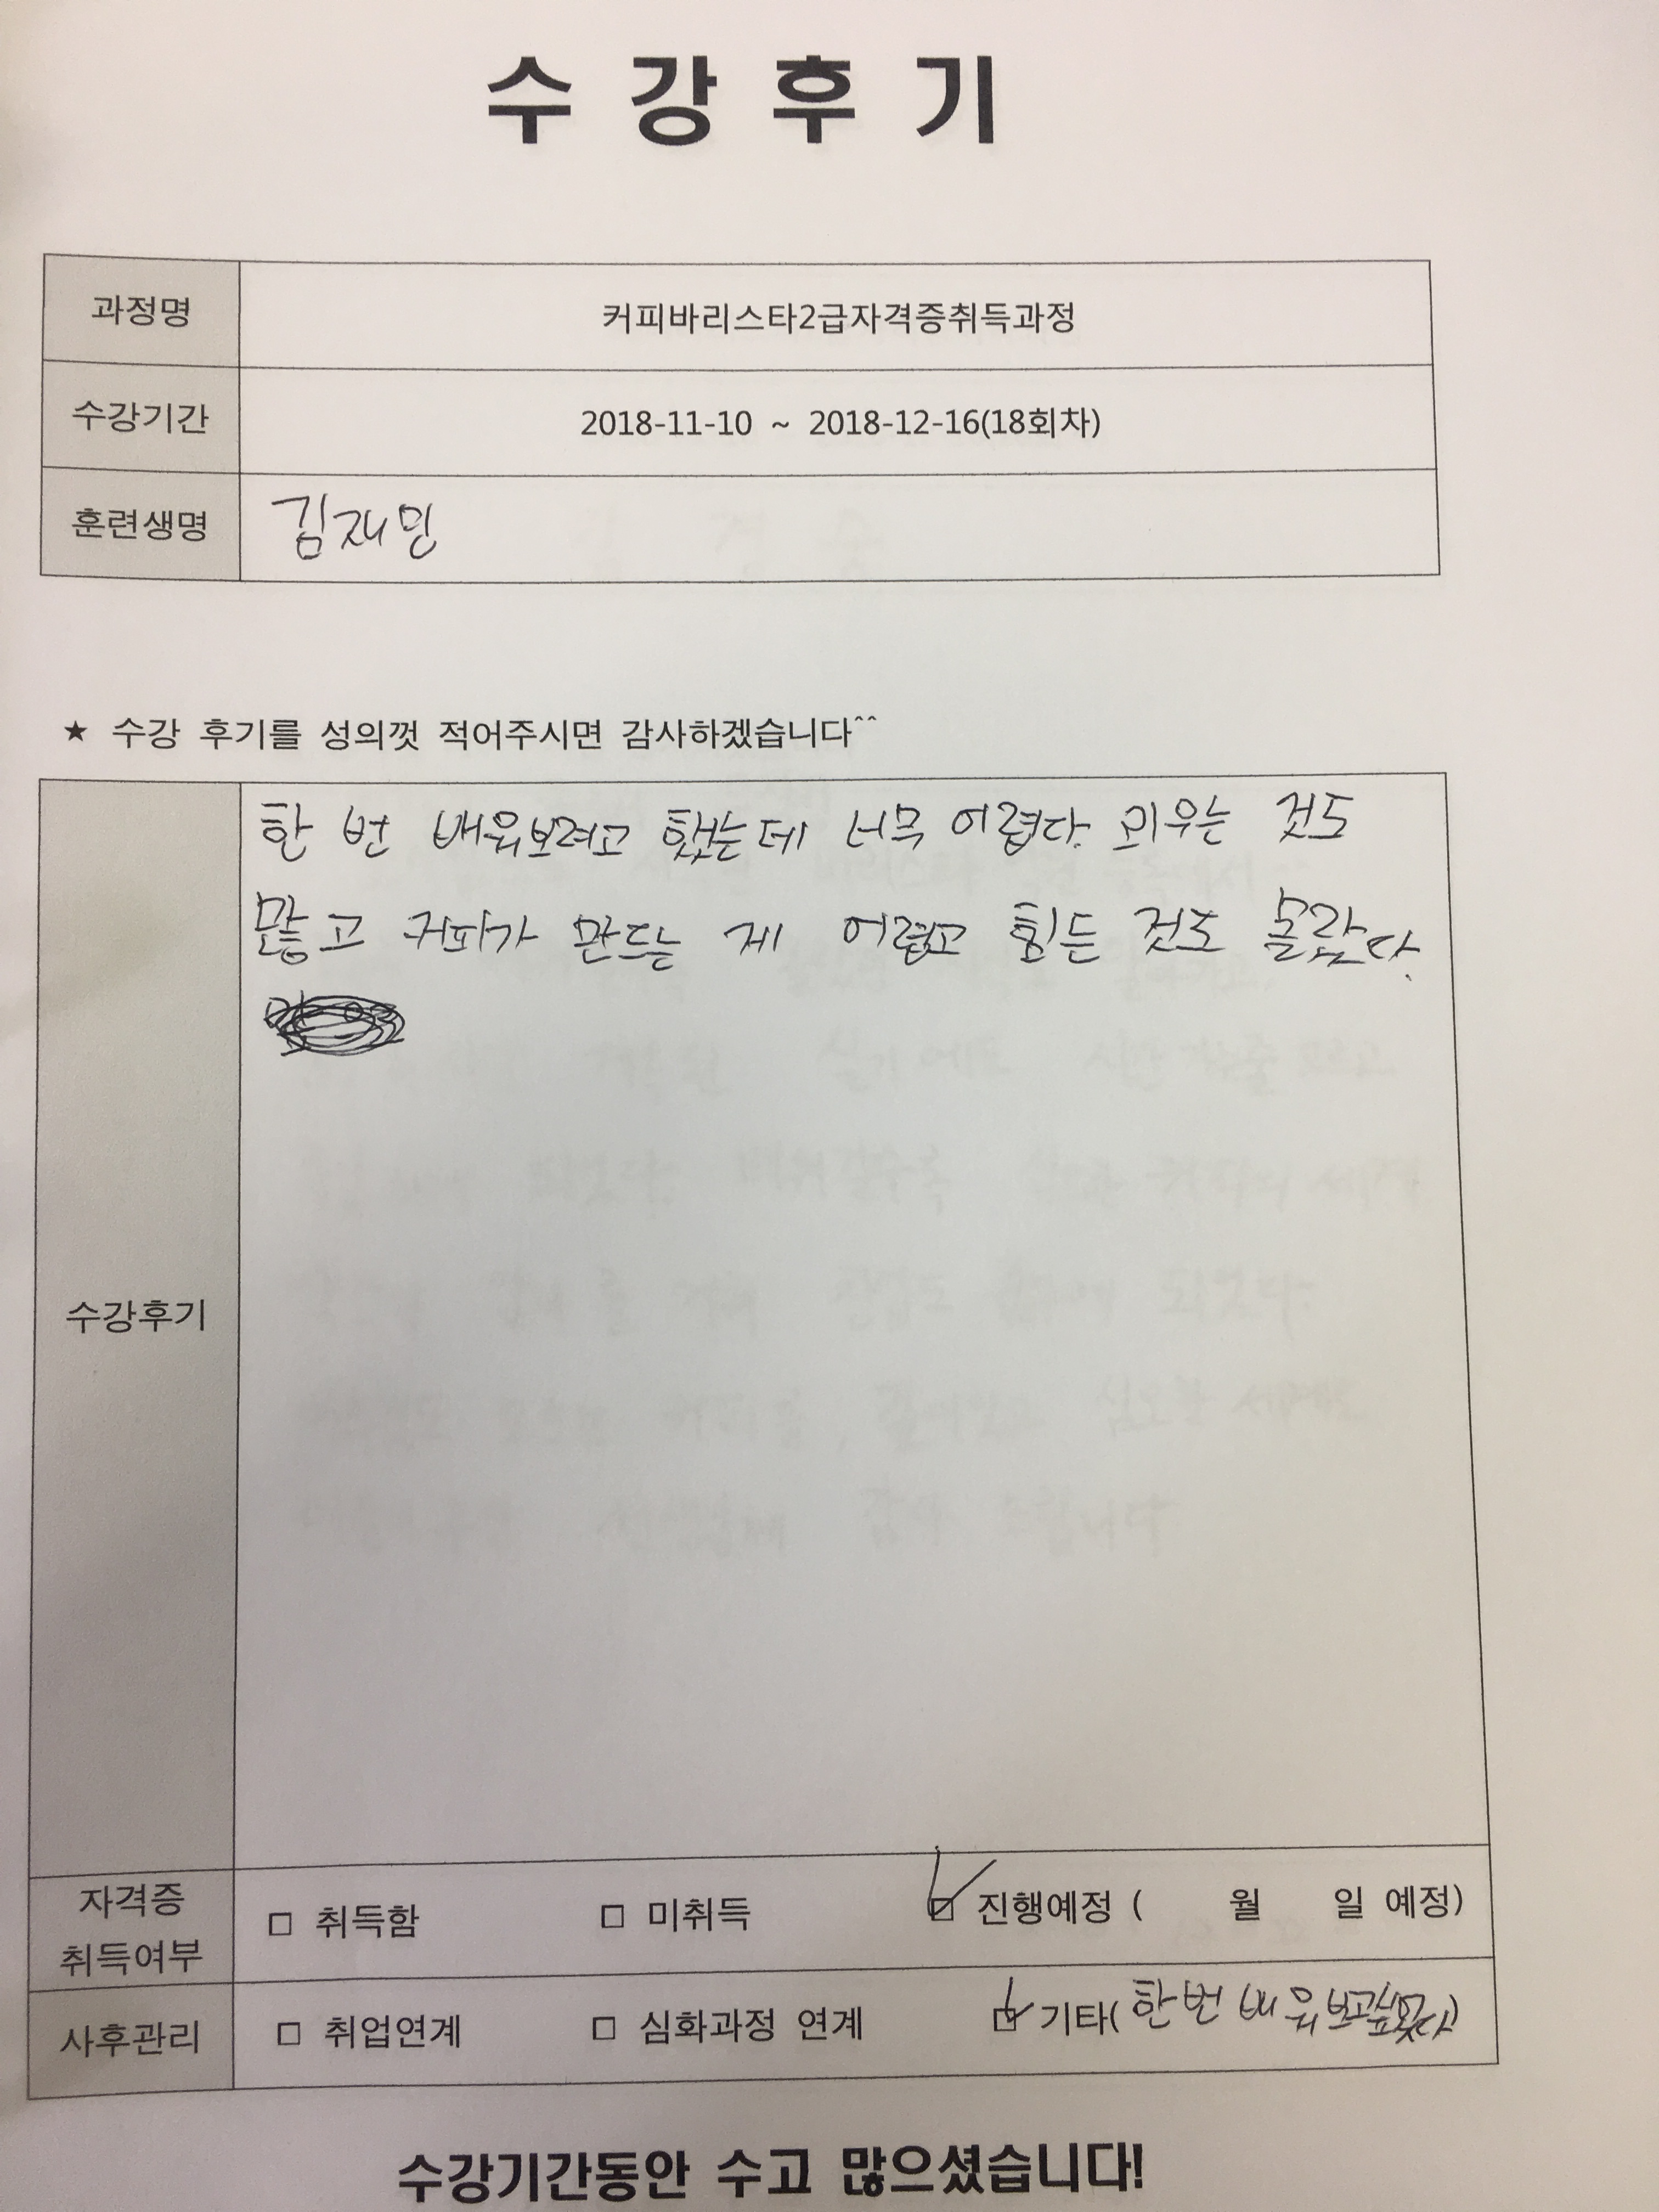 수강후기
과정명 커피바리스타2급자격증취득과정
수강기간 2018-11-10 ~ 2018-12-16(18회차)
훈련생명 김재민
★ 수강 후기를 성의껏 적어주시면 감사하겠습니다^^
한 번 배워보려고 했는데 너무 어렵다. 외우는 것도
많고 커피가 만드는 게 어렵고 힘든 것도 몰랐다.
수강후기
자격증
취득여부
□ 취득함 □ 미취득 ☑ 진행예정 ( 월 일 예정)
사후관리 □ 취업연계 □ 심화과정 연계 ☑ 기타( 한번 배워보고싶었다)
수강기간동안 수고 많으셨습니다!